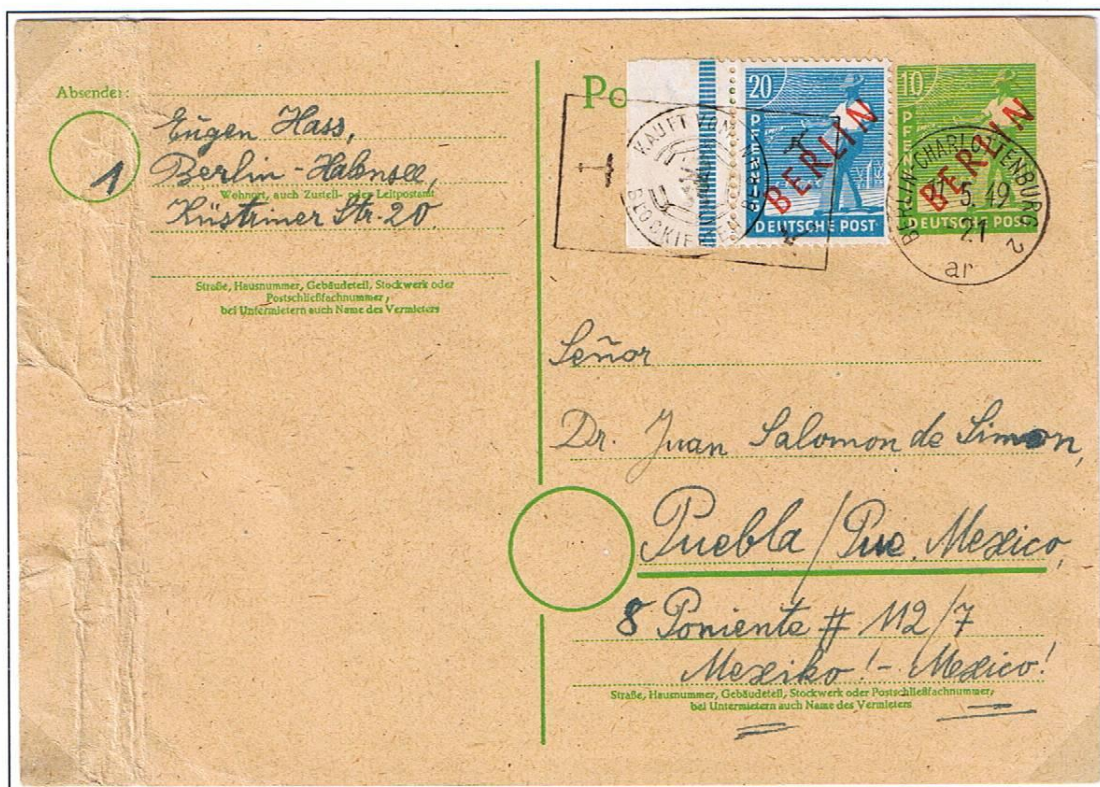 Absender:
Eugen Hass,
Berlin-Halensee,
1
Wohnort, auch Zustell- oder Leitpostamt
Küstriner Str. 20.
Straße, Hausnummer, Gebäudeteil, Stockwerk oder
Postschließfachnummer,
bei Untermietern auch Name des Vermieters
Po
KAUFT
BLOCKIERTEN
20
PFENNIG
BERLIN
DEUTSCHE POST
10
PFENNIG
BERLIN
DEUTSCHE POST
BERLIN-CHARLOTTENBURG 2
5.49
-21
ar
Señor
Dr. Juan Salomon de Simon,
Puebla/Pue. Mexico,
8 Poniente # 112/7
Mexiko! - Mexico!
Straße, Hausnummer, Gebäudeteil, Stockwerk oder Postschließfachnummer,
bei Untermietern auch Name des Vermieters